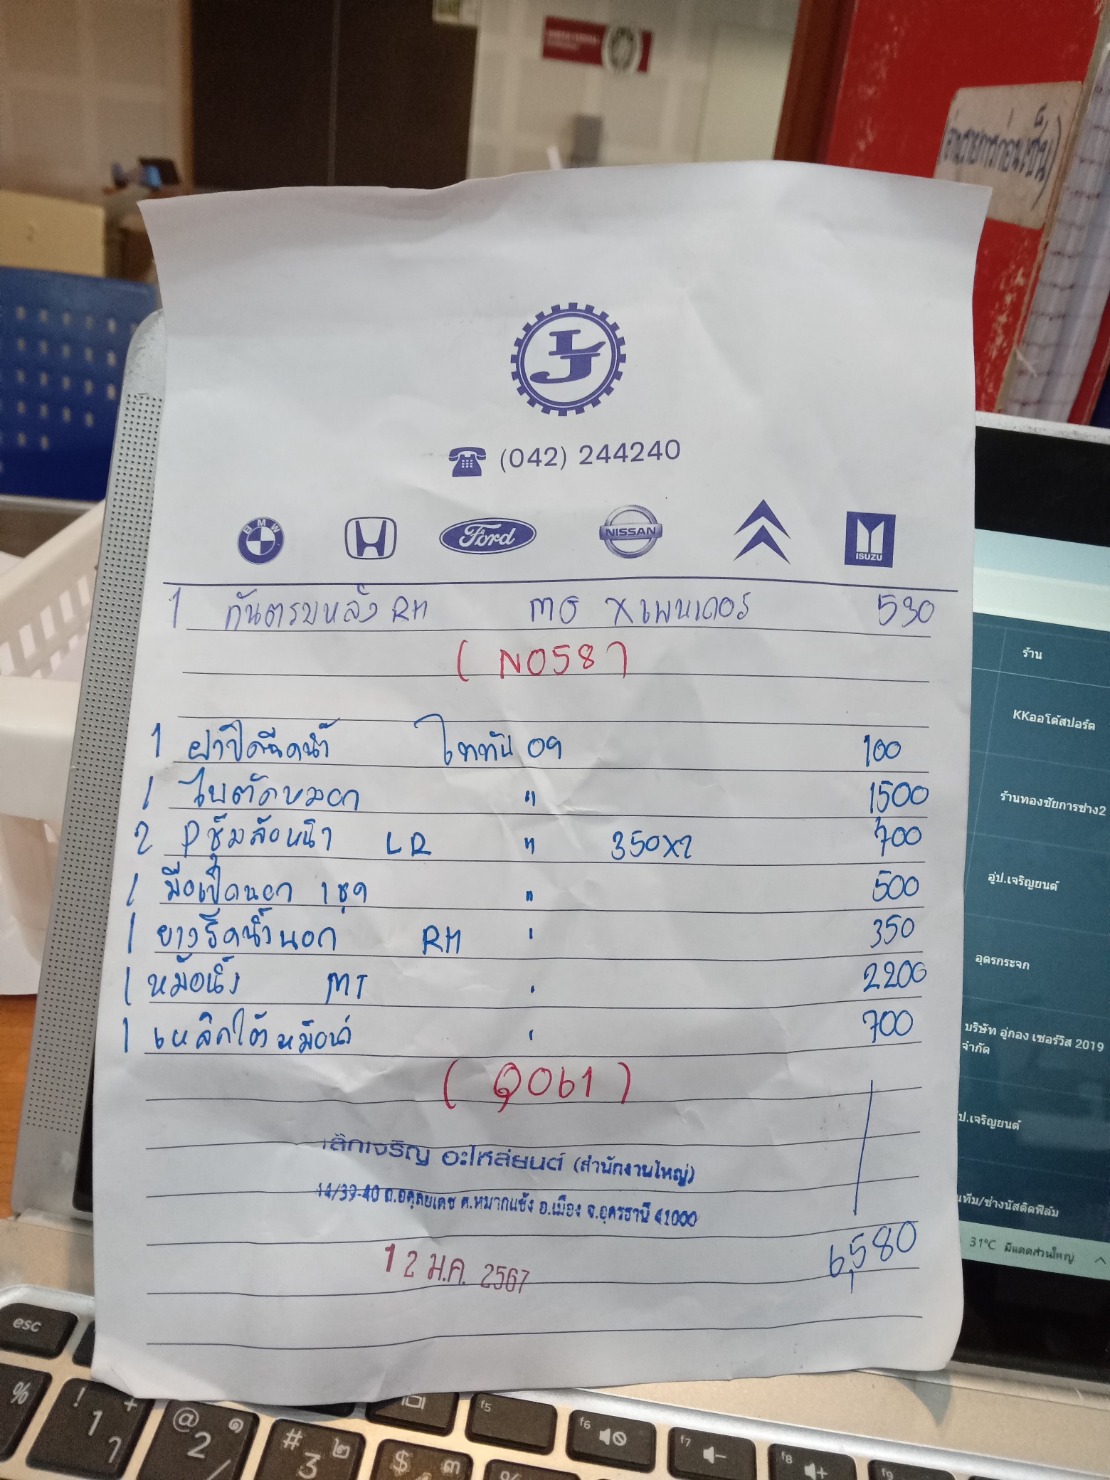 (042) 244240
BMW
Ford
NISSAN
ISUZU
1 กันตรบหลัง RH MG Xเพนเดอร์ 530
(N058)
1 ฝาปิดฉีดน้ำ ไททัน 09 100
1 ไบตัดหมอก " 1500
2 Pซุ้มล้อหน้า LR " 350x2 700
1 มือเปิดนอก 1 ชุด " 500
1 ยางรีดน้ำนอก RH " 350
1 หม้อน้ำ MT " 2200
1 เหล็กใต้หม้อน้ำ " 700
(ปอ61)
เล็กเจริญ อะไหล่ยนต์ (สำนักงานใหญ่)
14/39-40 ถ.อดุลยเดช ต.หมากแข้ง อ.เมือง จ.อุดรธานี 41000
12 ม.ค. 2567
6,580
ร้าน
KKออโต้สปอร์ต
ร้านทองชัยการช่าง2
อู่ป.เจริญยนต์
อุดรกระจก
บริษัท อู่กอง เซอร์วิส 2019
จำกัด
ป.เจริญยนต์
แพ็ม/ช่างนัสติดฟิล์ม
31°C มีแดดส่วนใหญ่
esc
f5
f6
f7
f8
f9
%
! + 1 ๅ
@ ๑ 2
# ๒ 3
$ ๓
%